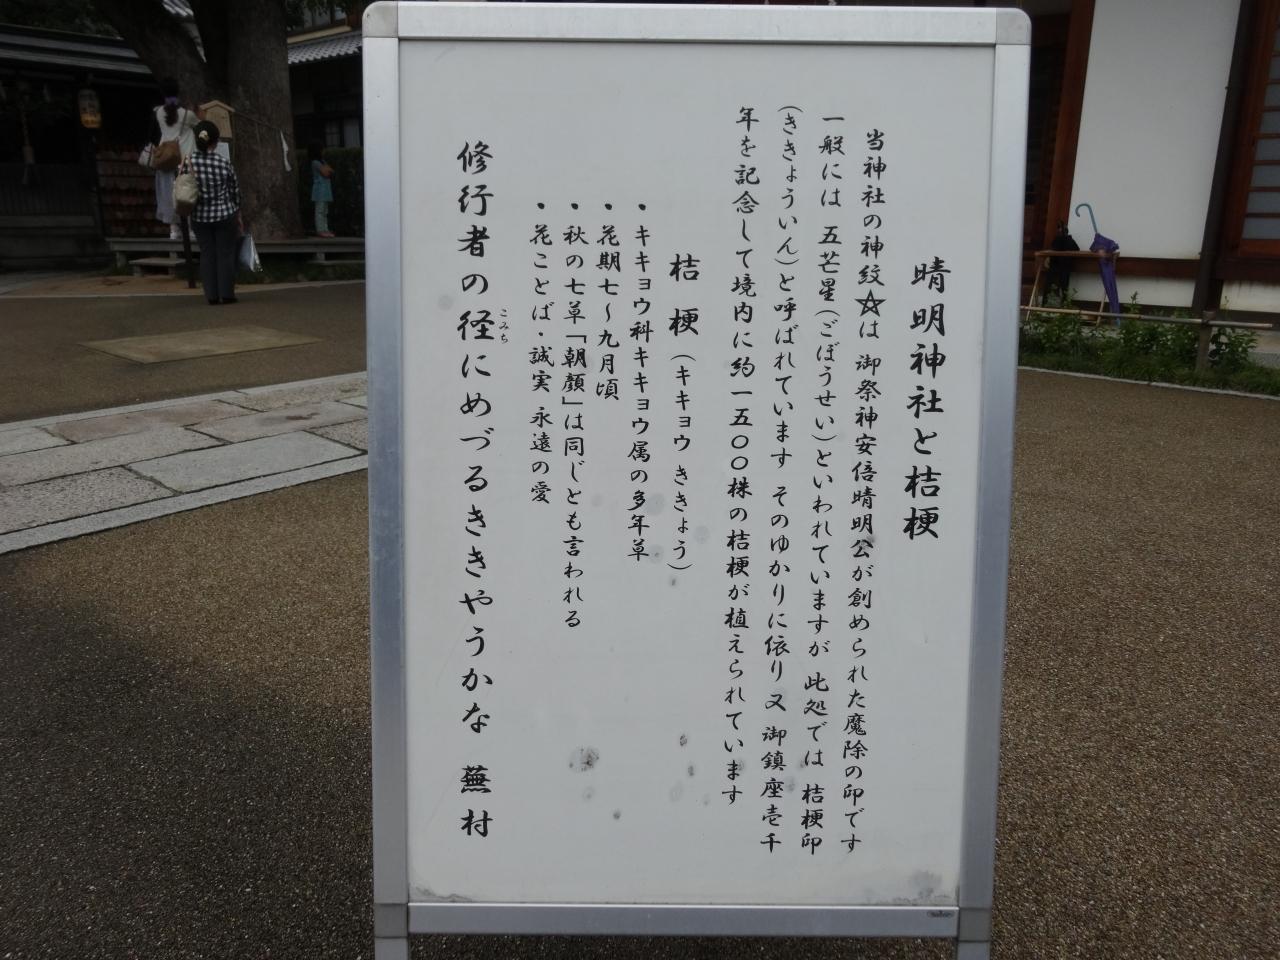 晴明神社と桔梗
当神社の神紋☆は 御祭神安倍晴明公が創められた魔除の印です
一般には 五芒星(ごぼうせい)といわれていますが 此処では 桔梗印
(ききょういん)と呼ばれています そのゆかりに依り 又 御鎮座壱千
年を記念して境内に約一五〇〇株の桔梗が植えられています
桔梗(キキョウ ききょう)
・キキョウ科キキョウ属の多年草
・花期七〜九月頃
・秋の七草「朝顔」は同じとも言われる
・花ことば・誠実 永遠の愛
修行者の径にめづるききやうかな 蕪村
こみち